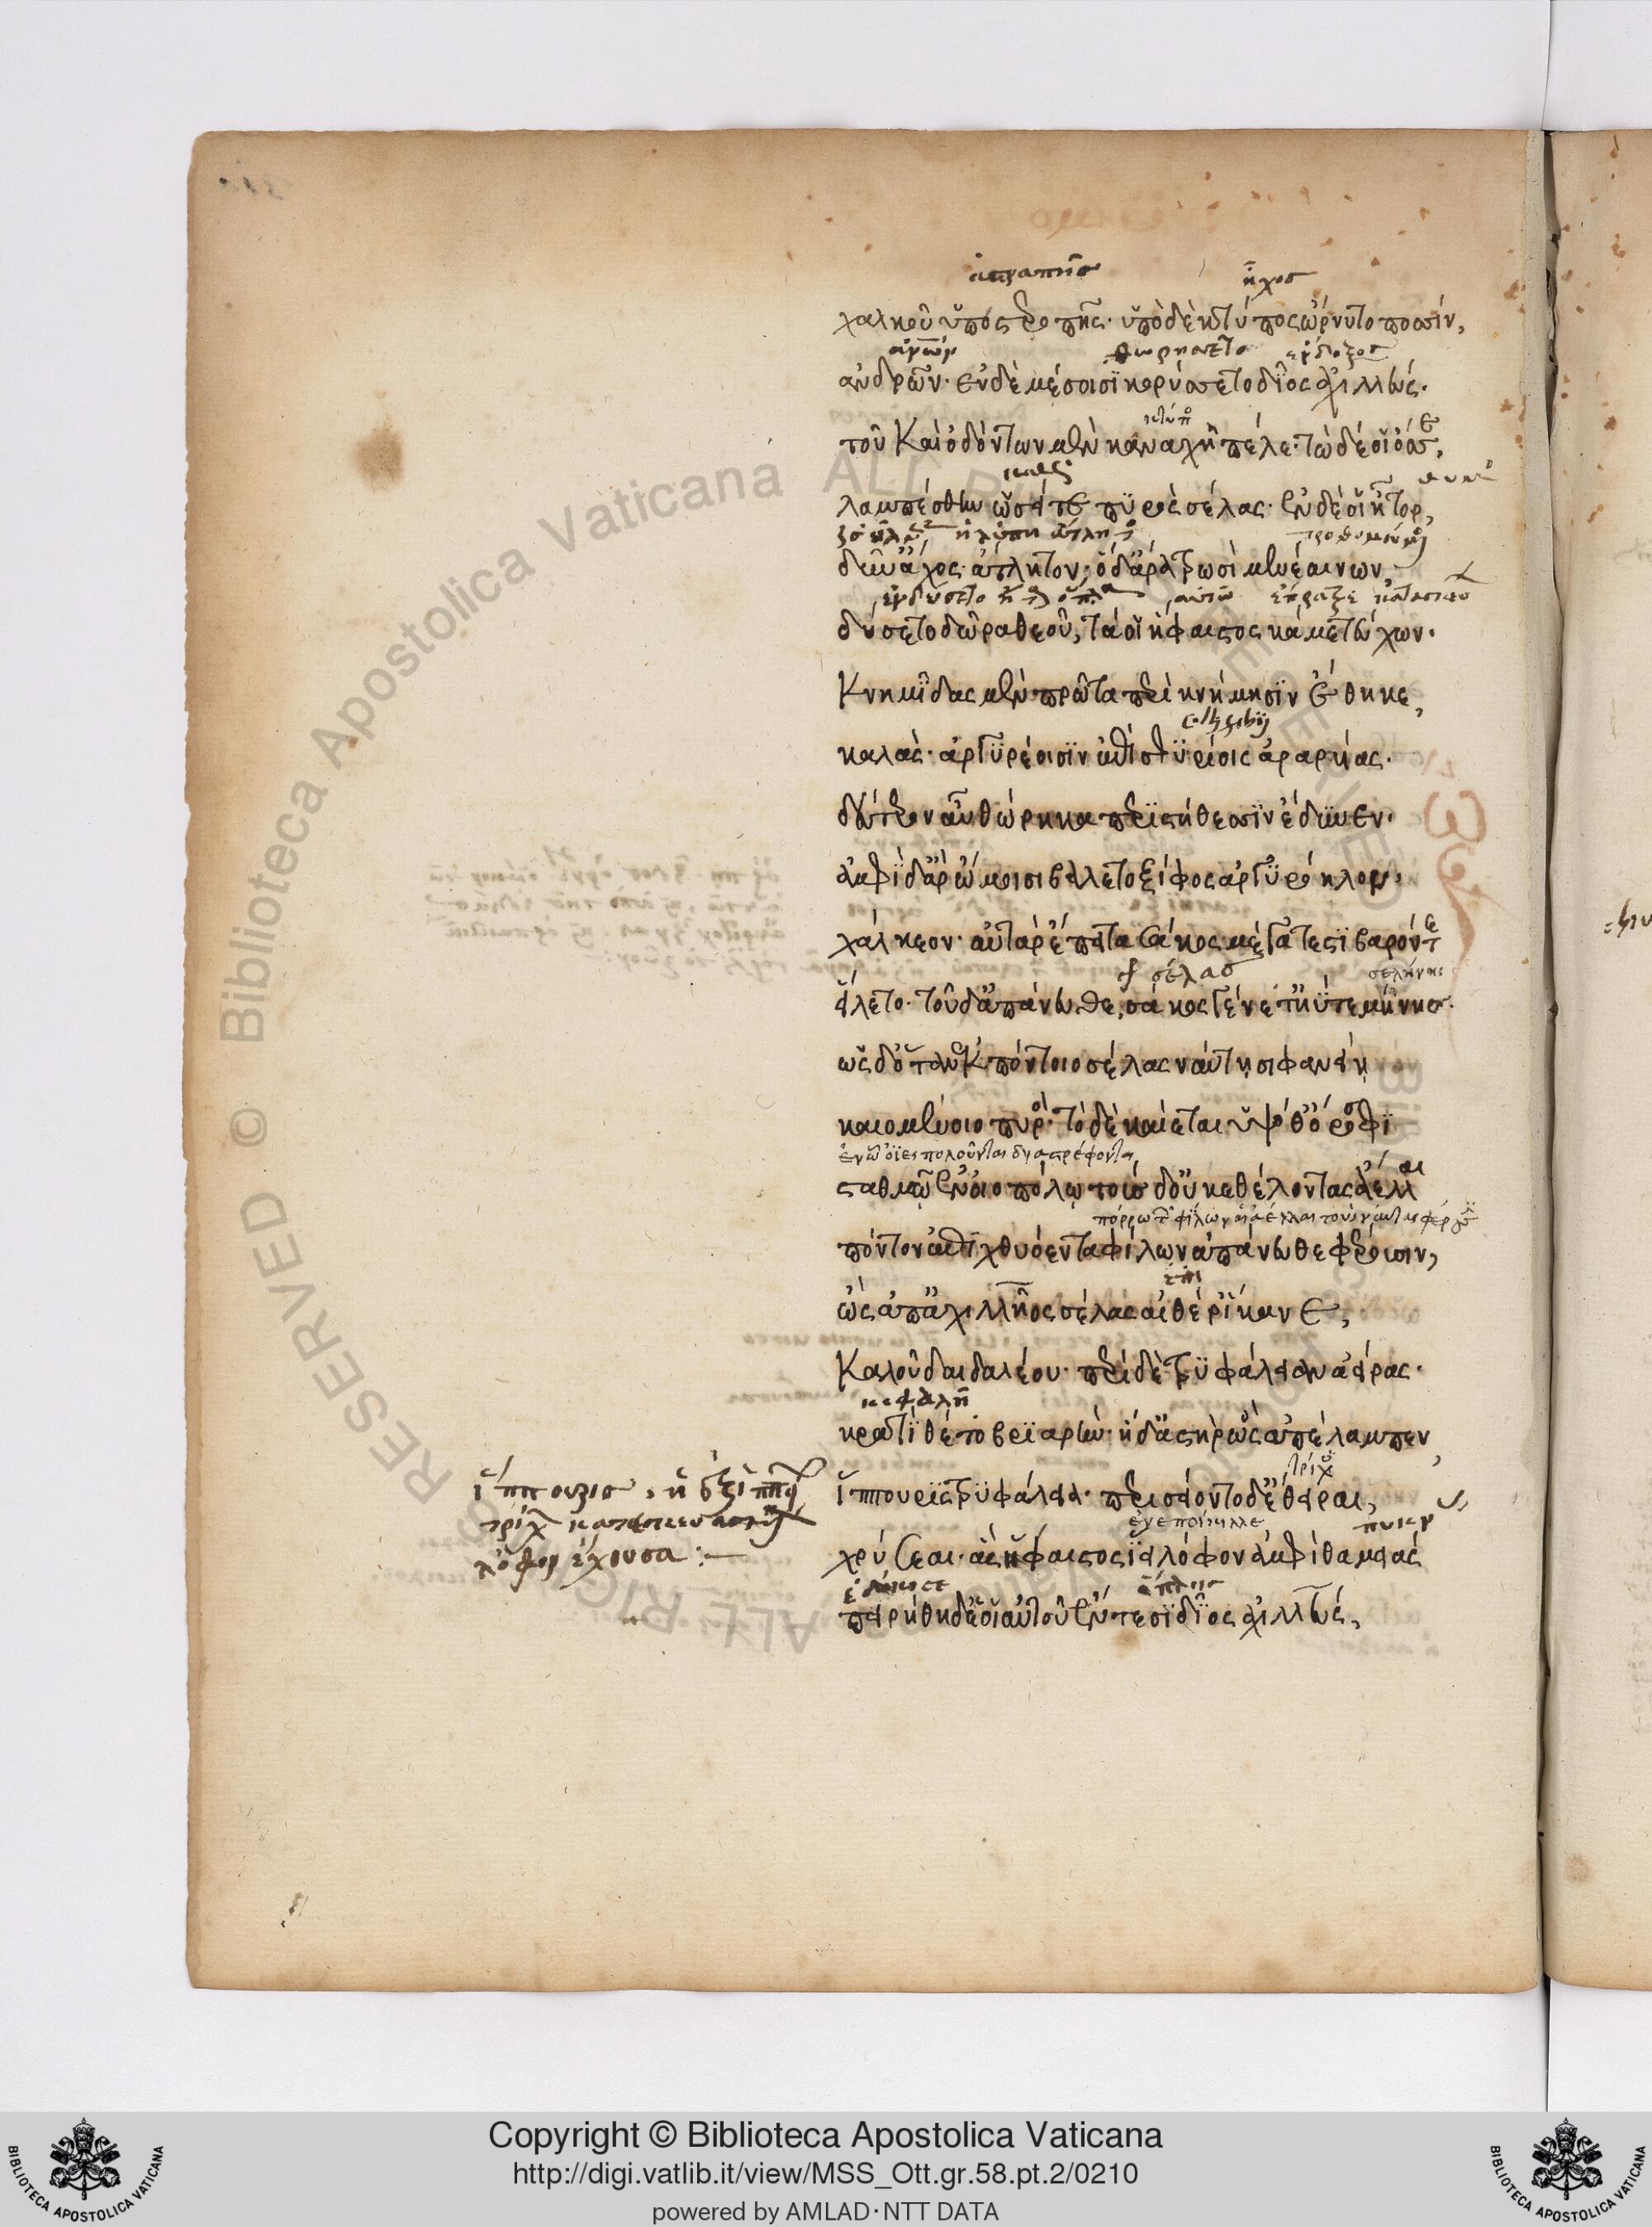 ἀστραπῆς
ἦχος
χαλκοῦ ὑπὸ στεροπῆς· ὑπὸ δὲ κτύπος ὤρνυτο ποσσίν,
θωρήσετο ἔνδοξος
ἀνδρῶν· ἐν δὲ μέσοισι κορύσσετο δῖος ἀχιλλεύς.
τοῦ καὶ ὀδόντων μὲν καναχὴ πέλε· τὼ δέ οἱ ὄσσε,
λαμπέσθην ὡσεί τε πυρὸς σέλας· ἐν δέ οἱ ἦτορ,
δῦν' ἄχος ἄτλητον· ὁ δ' ἄρα τρωσὶ μενεαίνων,
ἐνδύσετο
δύσετο δῶρα θεοῦ, τά οἱ ἥφαιστος κάμε τεύχων.
κνημῖδας μὲν πρῶτα περὶ κνήμησιν ἔθηκε,
καλάς· ἀργυρέοισιν ἐπισφυρίοις ἀραρυίας.
δεύτερον αὖ θώρηκα περὶ στήθεσσιν ἔδυνεν.
ἀμφὶ δ' ἄρ' ὤμοισι βάλετο ξίφος ἀργυρόηλον,
χάλκεον· αὐτὰρ ἔπειτα σάκος μέγα τε στιβαρόν τε
σέλας σελήνης
εἵλετο· τοῦ δ' ἀπάνευθε, σάκος γένετ' ἠύτε μήνης.
ὡς δ' ὅταν ἐκ πόντοιο σέλας ναύτησι φανείη
καιομένοιο πυρός· τὸ δὲ καίεται ὑψόθ' ὄρεσφι
σταθμῷ ἐν οἰοπόλῳ τοὺς δ' οὐκ ἐθέλοντας ἄελλαι
πόντον ἐπ' ἰχθυόεντα φίλων ἀπάνευθε φέρουσιν,
ὣς ἀπ' ἀχιλλῆος σέλας αἰθέρ' ἵκανε,
καλοῦ δαιδαλέου· περὶ δὲ τρυφάλειαν ἀείρας.
κεφαλῆ
κρατὶ θέτο βριαρήν· ἡ δ' ἀστὴρ ὣς ἀπέλαμπεν,
ἵππουρις τρυφάλεια· περισσείοντο δ' ἔθειραι,
χρύσεαι· ἃς ἥφαιστος ἵει λόφον ἀμφὶ θαμειάς
πειρήθη δ' ἕο αὐτοῦ ἐν ἔντεσι δῖος ἀχιλλεύς,
ἵππουρις, ἡ ἐξ ἱππείων
τριχῶν κατεσκευασμένον
λόφον ἔχουσα:
Copyright © Biblioteca Apostolica Vaticana
http://digi.vatlib.it/view/MSS_Ott.gr.58.pt.2/0210
powered by AMLAD·NTT DATA
BIBLIOTECA APOSTOLICA VATICANA
BIBLIOTECA APOSTOLICA VATICANA
© Biblioteca Apostolica Vaticana ALL RIGHTS RESERVED